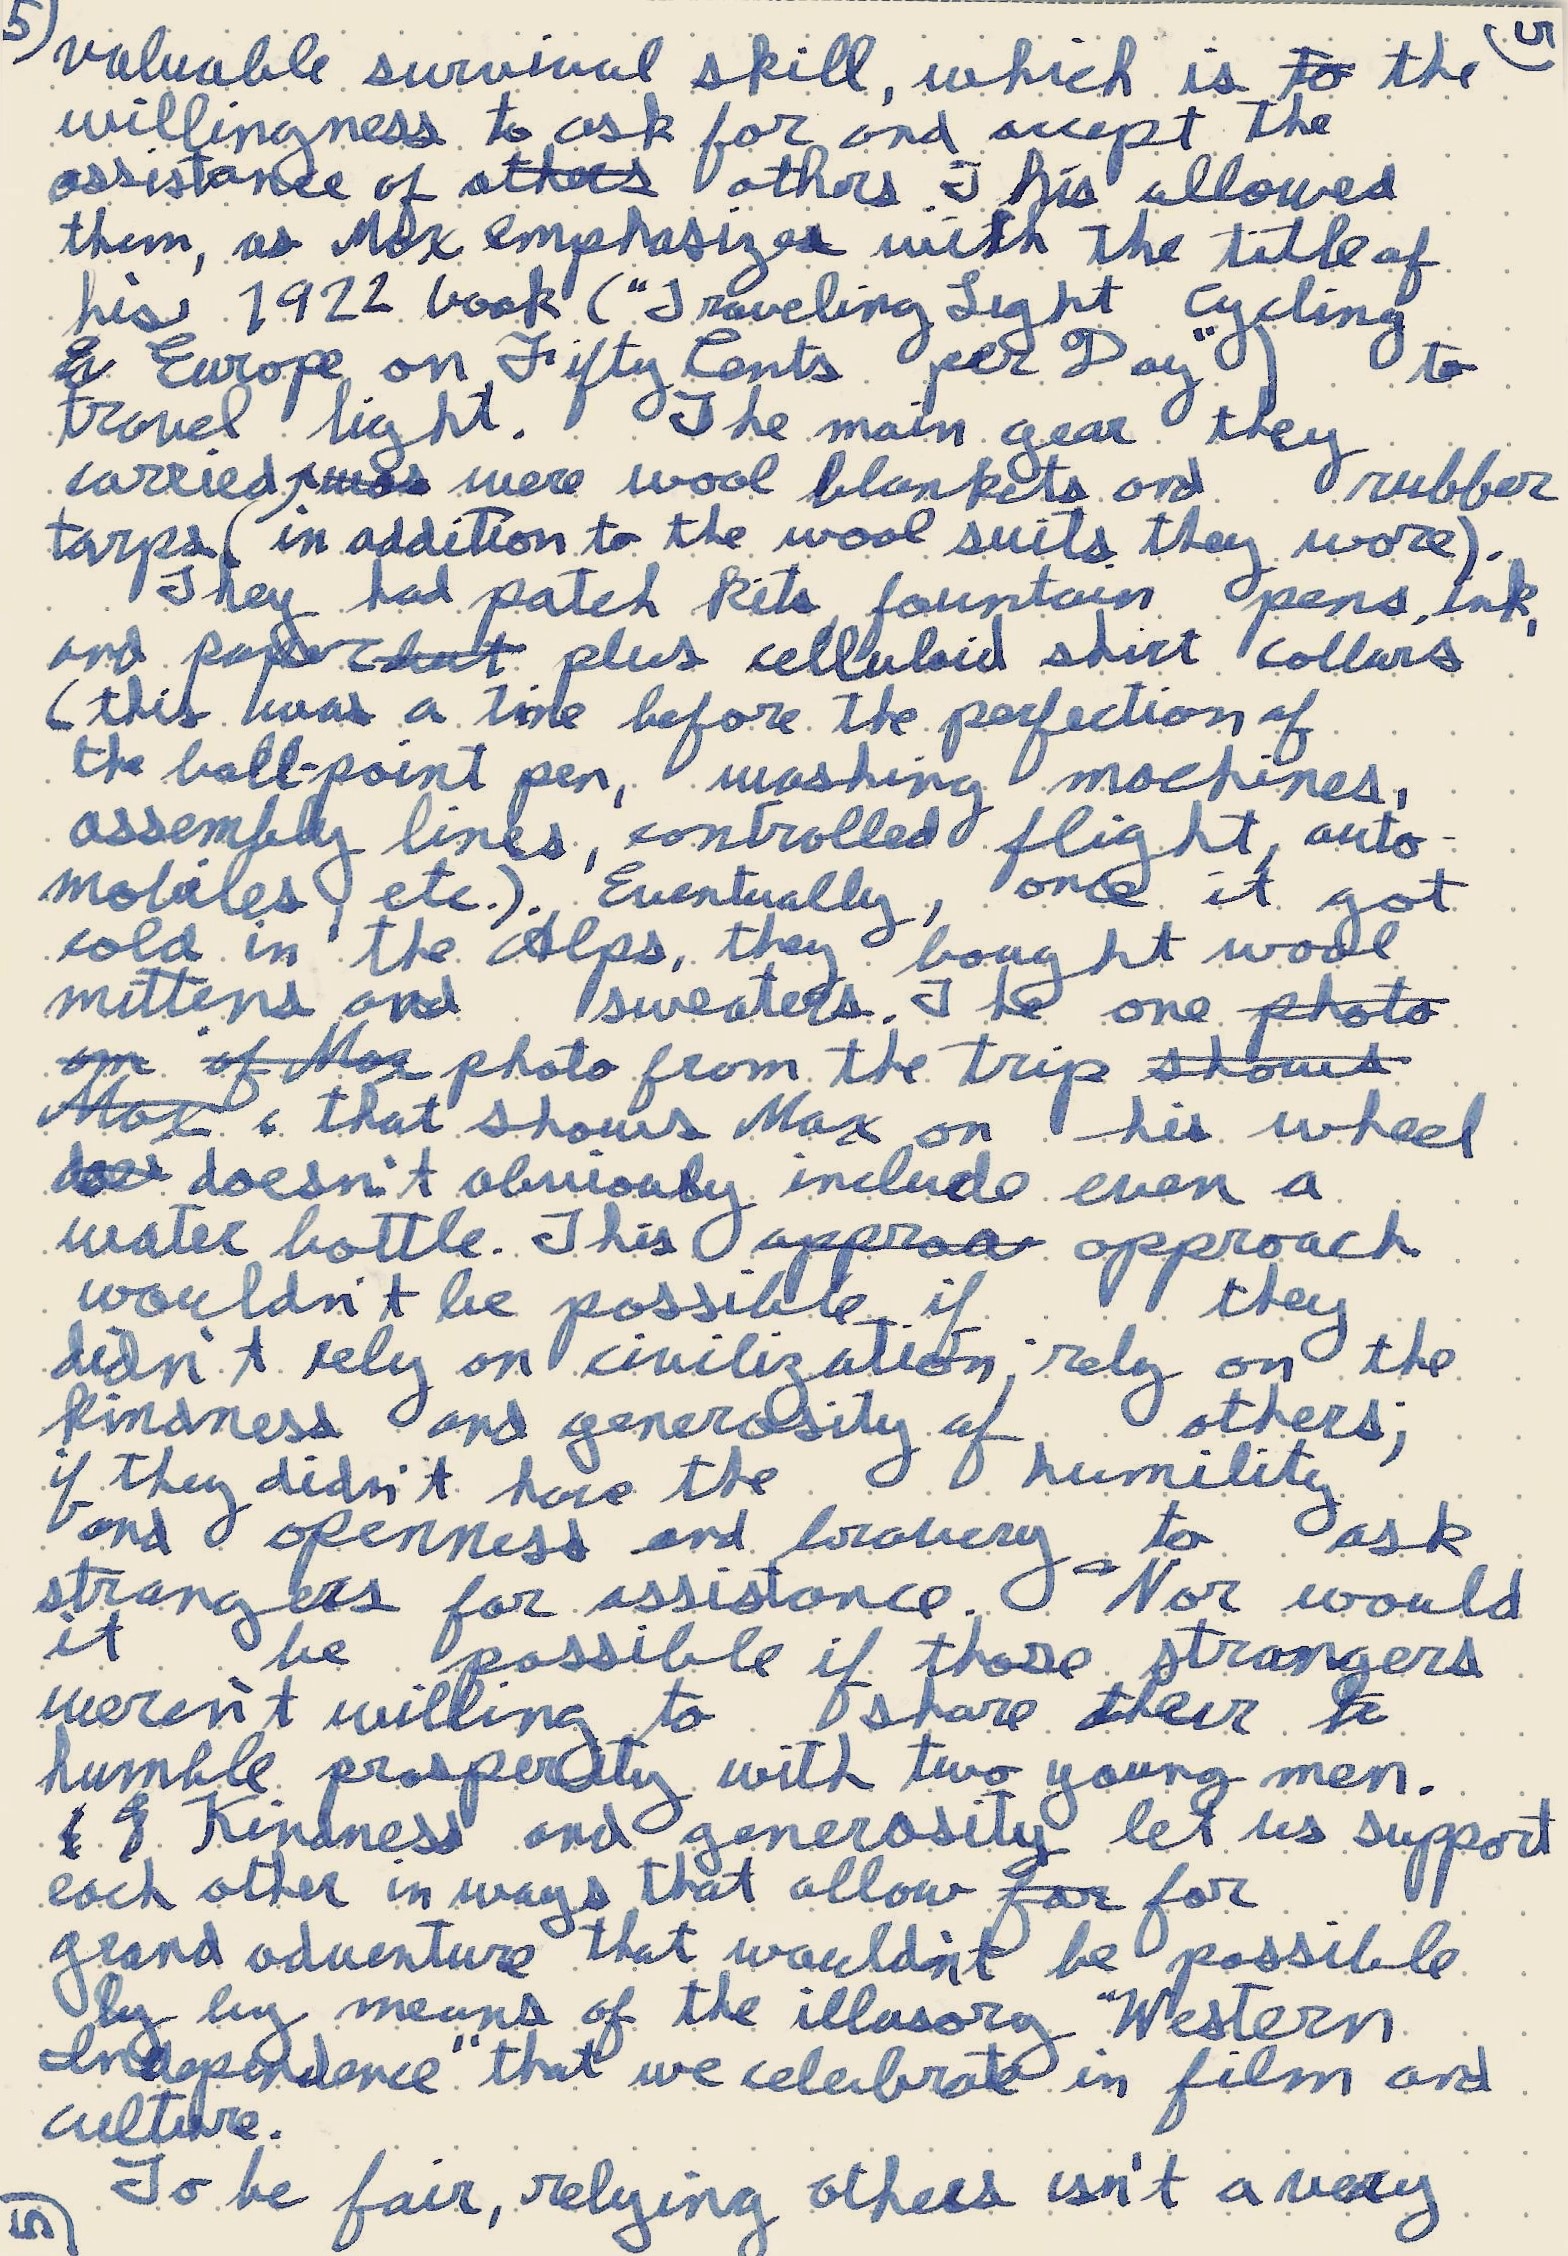 5) 5)
valuable survival skill, which is to the
willingness to ask for and accept the
assistance of others others This allowed
them, as Max emphasizes with the title of
his 1922 book ("Traveling Light Cycling
Europe on Fifty Cents per Day") to
travel light. The main gear they
carried, was were wool blankets and rubber
tarps (in addition to the wool suits they wore).
They had patch kits, fountain pens, ink,
and paper but plus celluloid shirt collars
(this was a time before the perfection of
the ball-point pen, washing machines,
assembly lines, controlled flight, auto-
mobiles, etc.). Eventually, once it got
cold in the Alps, they bought wool
mittens and sweaters. The one photo
om of Max photo from the trip shows
Max that shows Max on his wheel
does doesn't obviously include even a
water bottle. This approa approach
wouldn't be possible if they
didn't rely on civilization, rely on the
kindness and generosity of others;
if they didn't have the humility
and openness and bravery to ask
strangers for assistance. Nor would
it be possible if those strangers
weren't willing to share their h
humble prosperity with two young men.
Kindness and generosity let us support
each other in ways that allow for for
grand adventure that wouldn't be possible
by by means of the illusory "Western
Independence" that we celebrate in film and
culture.
To be fair, relying others isn't a very
5)